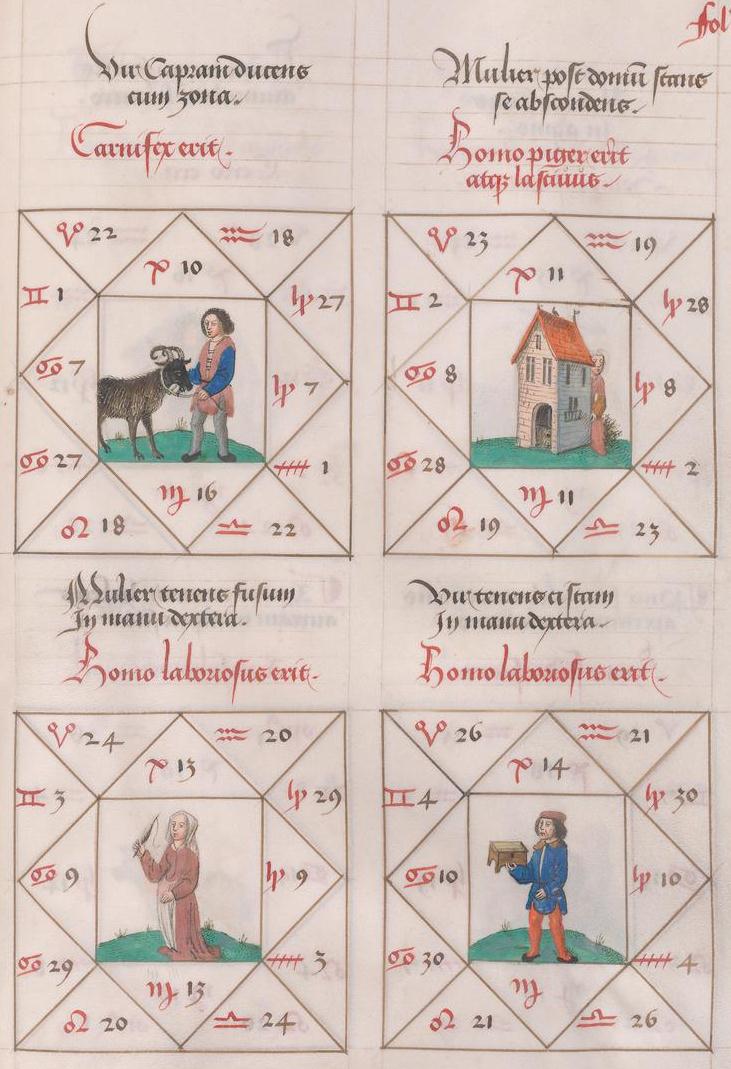 Fol
Vir Capram ducens
cum zona.
Carnifex erit.
♉ 22
♒ 18
♓ 10
♊ 1
♑ 27
♋ 7
♑ 7
♋ 27
♐ 1
♍ 16
♌ 18
♎ 22
Mulier post domū stans
se abscondens.
Homo piger erit
atqꝫ lasciuus.
♉ 23
♒ 19
♓ 11
♊ 2
♑ 28
♋ 8
♑ 8
♋ 28
♐ 2
♍ 11
♌ 19
♎ 23
Mulier tenens fusum
In manu dextera.
Homo laboriosus erit.
♉ 24
♒ 20
♓ 13
♊ 3
♑ 29
♋ 9
♑ 9
♋ 29
♐ 3
♍ 13
♌ 20
♎ 24
Vir tenens cistam
In manu dextera.
Homo laboriosus erit.
♉ 26
♒ 21
♓ 14
♊ 4
♑ 30
♋ 10
♑ 10
♋ 30
♐ 4
♍
♌ 21
♎ 26